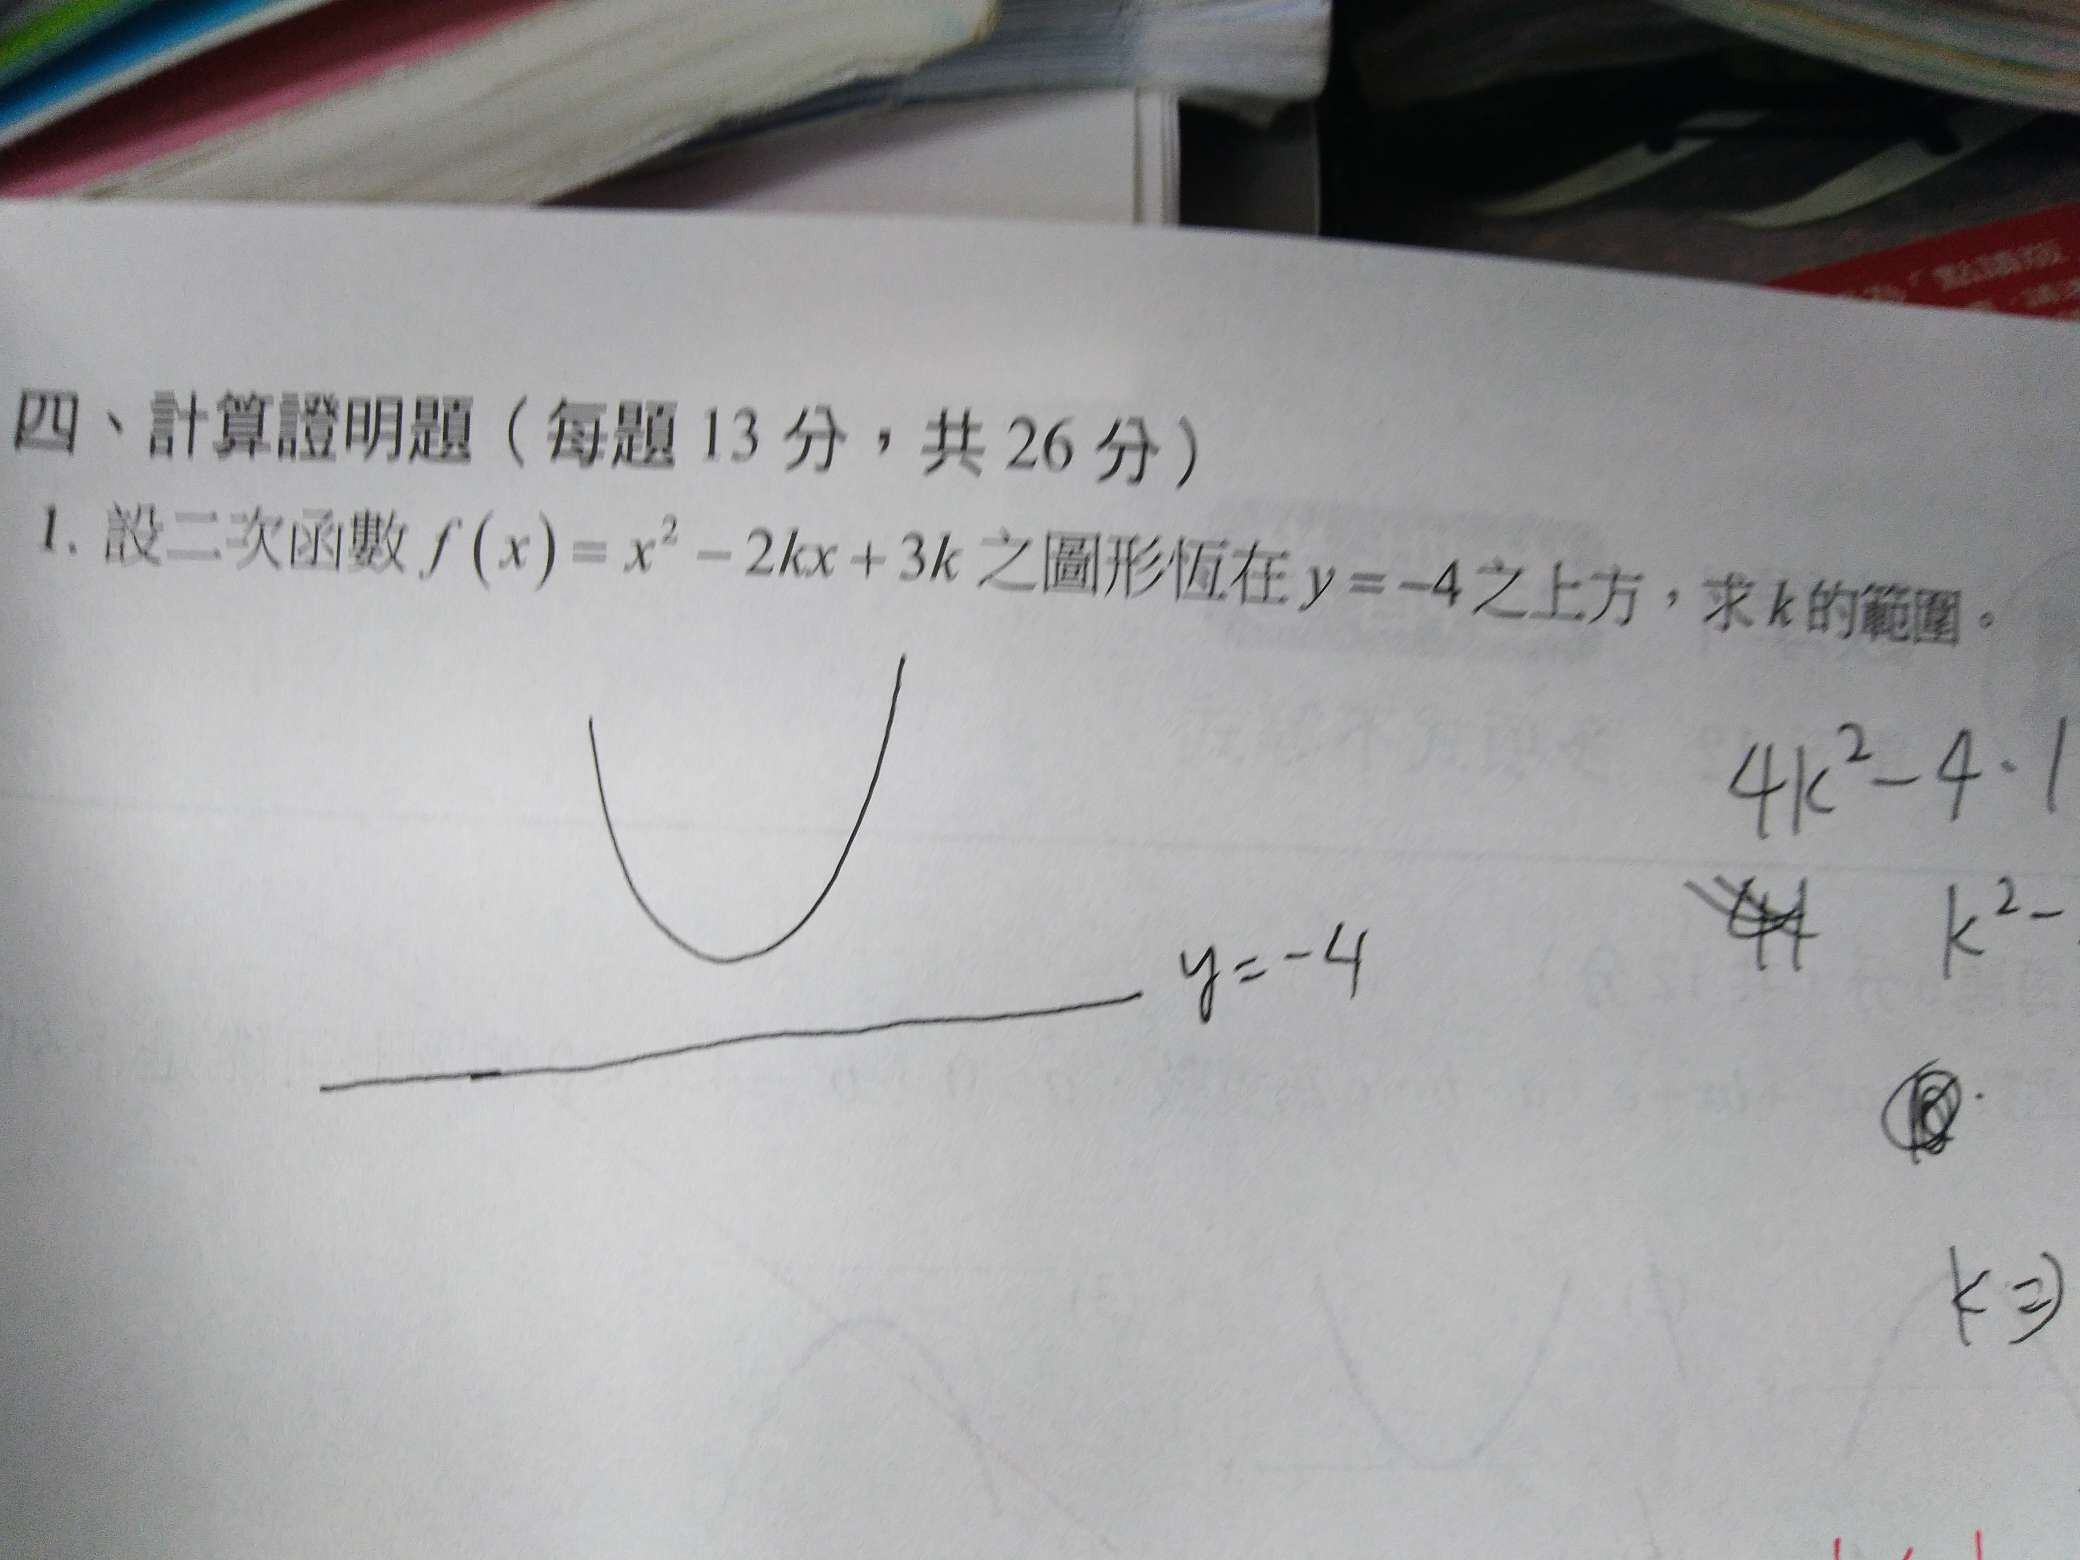 點讀版
四、計算證明題（每題 13 分，共 26 分）
1. 設二次函數 f(x) = x² − 2kx + 3k 之圖形恆在 y = −4 之上方，求 k 的範圍。
4k² − 4 · 1
k² −
y = −4
k ⇒